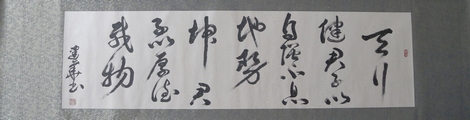 天行
健君子以
自强不息
地势
坤君
子以厚德
载物
建华书